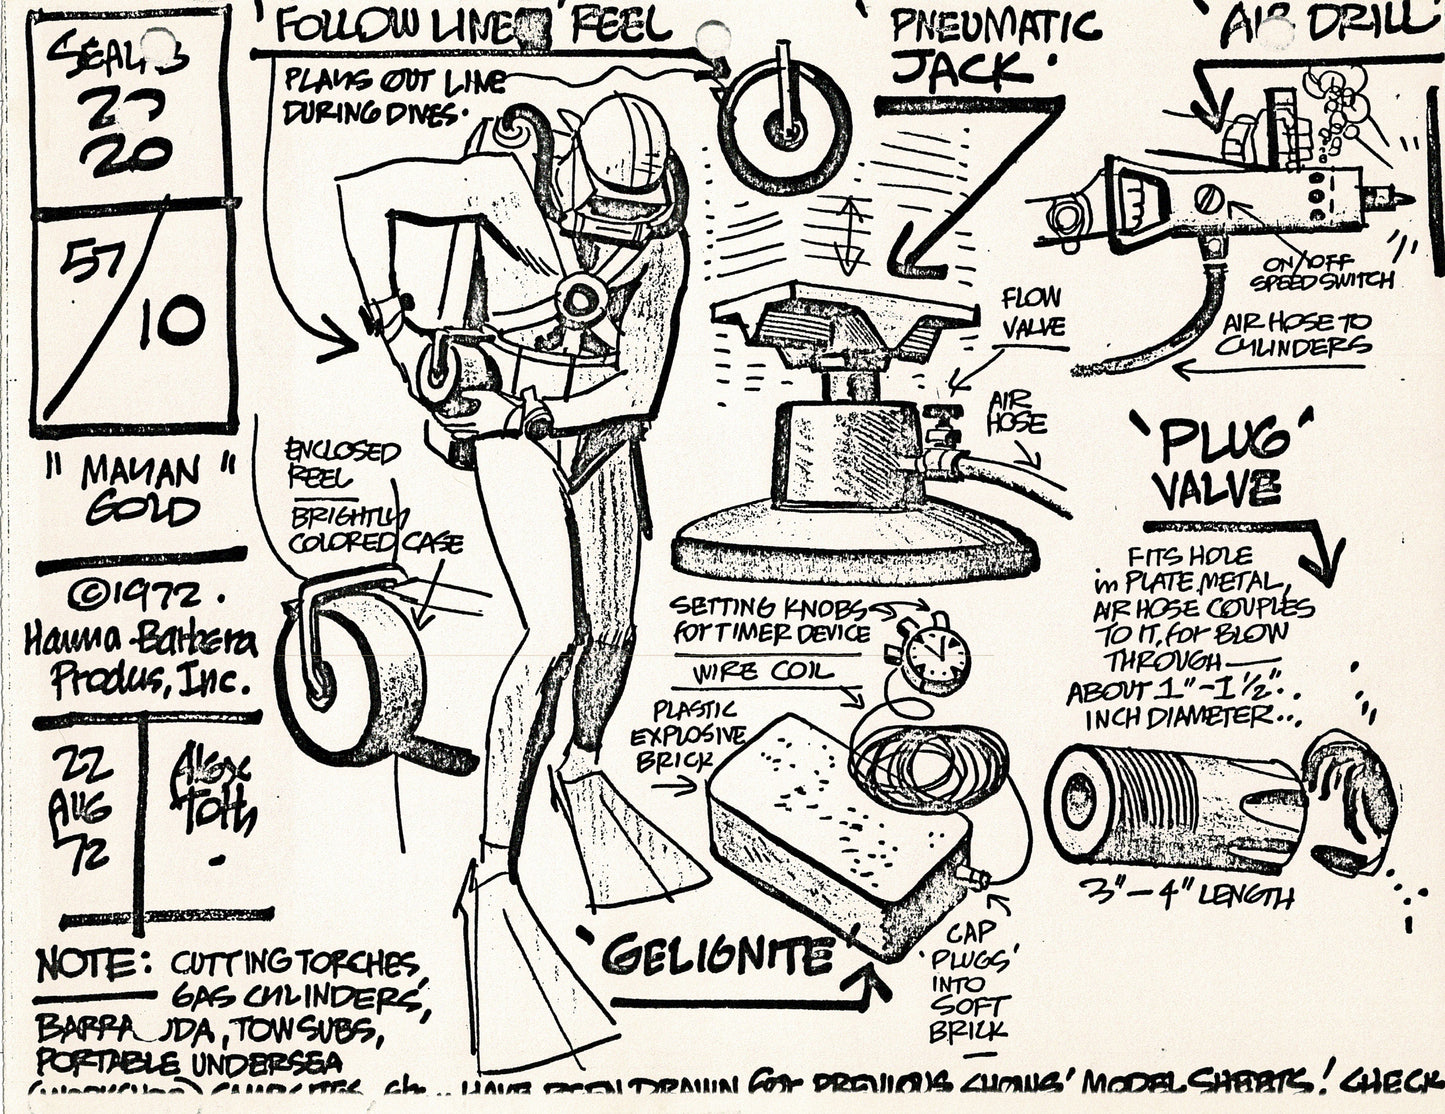 'FOLLOW LINE' REEL
PLAYS OUT LINE
DURING DIVES.
'PNEUMATIC
JACK'
'AIR DRILL'
20
57/10
"MAYAN"
GOLD
©1972.
Hanna-Barbera
Produs, Inc.
22
AUG
72
Alex
Toth
ENCLOSED
REEL
BRIGHTLY
COLORED CASE
FLOW
VALVE
AIR
HOSE
ON/OFF
SPEED SWITCH
AIR HOSE TO
CYLINDERS
'PLUG'
VALVE
FITS HOLE
in PLATE METAL,
AIR HOSE COUPLES
TO IT, for BLOW
THROUGH—
ABOUT 1"-1½"..
INCH DIAMETER...
3"—4" LENGTH
SETTING KNOBS
for TIMER DEVICE
WIRE COIL
PLASTIC
EXPLOSIVE
BRICK
'GELIGNITE'
CAP
'PLUGS'
INTO
SOFT
BRICK
NOTE: CUTTING TORCHES,
GAS CYLINDERS,
TOW SUBS,
PORTABLE UNDERSEA
HAVE BEEN DRAWN for PREVIOUS SHOWS' MODEL SHEETS! CHECK